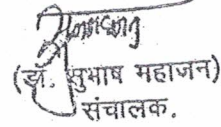 (डॉ. सुभाष महाजन)
संचालक.